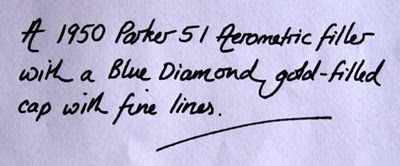 A 1950 Parker 51 Aerometric filler
with a Blue Diamond, gold-filled
cap with fine lines.